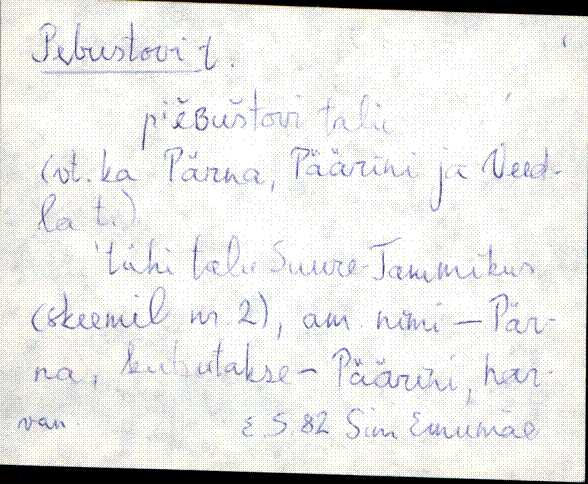 Pebustovi t.
piĕBuštovi talu
(vt. ka Pärna, Päärini ja Veed-
la t.)
'tühi talu Suure-Tammikus
(skeemil nr 2), am. nimi – Pär-
na, kutsutakse – Päärini, har-
van. E.S. 82 Sim Emumäe